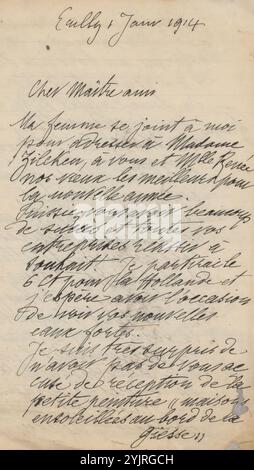 Ecully 1 Janv 1914
Cher Maître ami
Ma femme se joint à moi
pour adresser à Madame
Zilcken, à vous et Mlle Renée
nos vœux les meilleurs pour
la nouvelle année.
beaucoup
de succès et toutes vos
entreprises réussir à
souhait! Je partirai le
6 ct pour la Hollande et
j'espère avoir l'occasion
de voir vos nouvelles
eaux fortes.
Je suis très surpris de
n'avoir pas de vous ac
cusé de réception de la
petite peinture „maisons
ensoleillées au bord de la
alamy
Image ID: 2YJRGCH
www.alamy.com